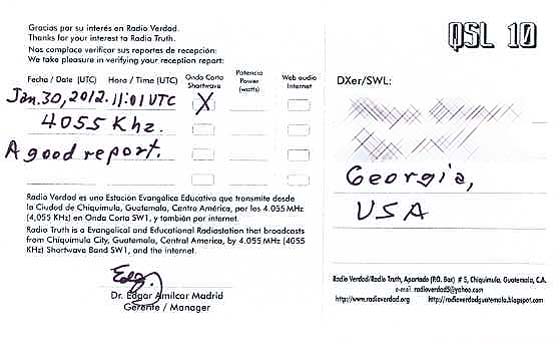 Gracias por su interés en Radio Verdad.
Thanks for your interest to Radio Truth.
Nos complace verificar sus reportes de recepción:
We take pleasure in verifying your reception report:
Fecha / Date (UTC) Hora / Time (UTC) Onda Corta Shortwave Potencia Power (watts) Web audio Internet
Jan. 30, 2012. 11:01 UTC X
4055 Khz.
A good report.
Radio Verdad es una Estación Evangélica Educativa que transmite desde
la Ciudad de Chiquimula, Guatemala, Centro América, por los 4.055 MHz
(4,055 KHz) en Onda Corta SW1, y también por internet.
Radio Truth is a Evangelical and Educational Radiostation that broadcasts
from Chiquimula City, Guatemala, Central America, by 4.055 MHz (4055
KHz) Shortwave Band SW1, and the internet.
Dr. Edgar Amilcar Madrid
Gerente / Manager
QSL 10
DXer/SWL:
Georgia,
USA
Radio Verdad/Radio Truth, Apartado (P.O. Box) # 5, Chiquimula, Guatemala, C.A.
e-mail: radioverdad5@yahoo.com
http://www.radioverdad.org http://radioverdadguatemala.blogspot.com